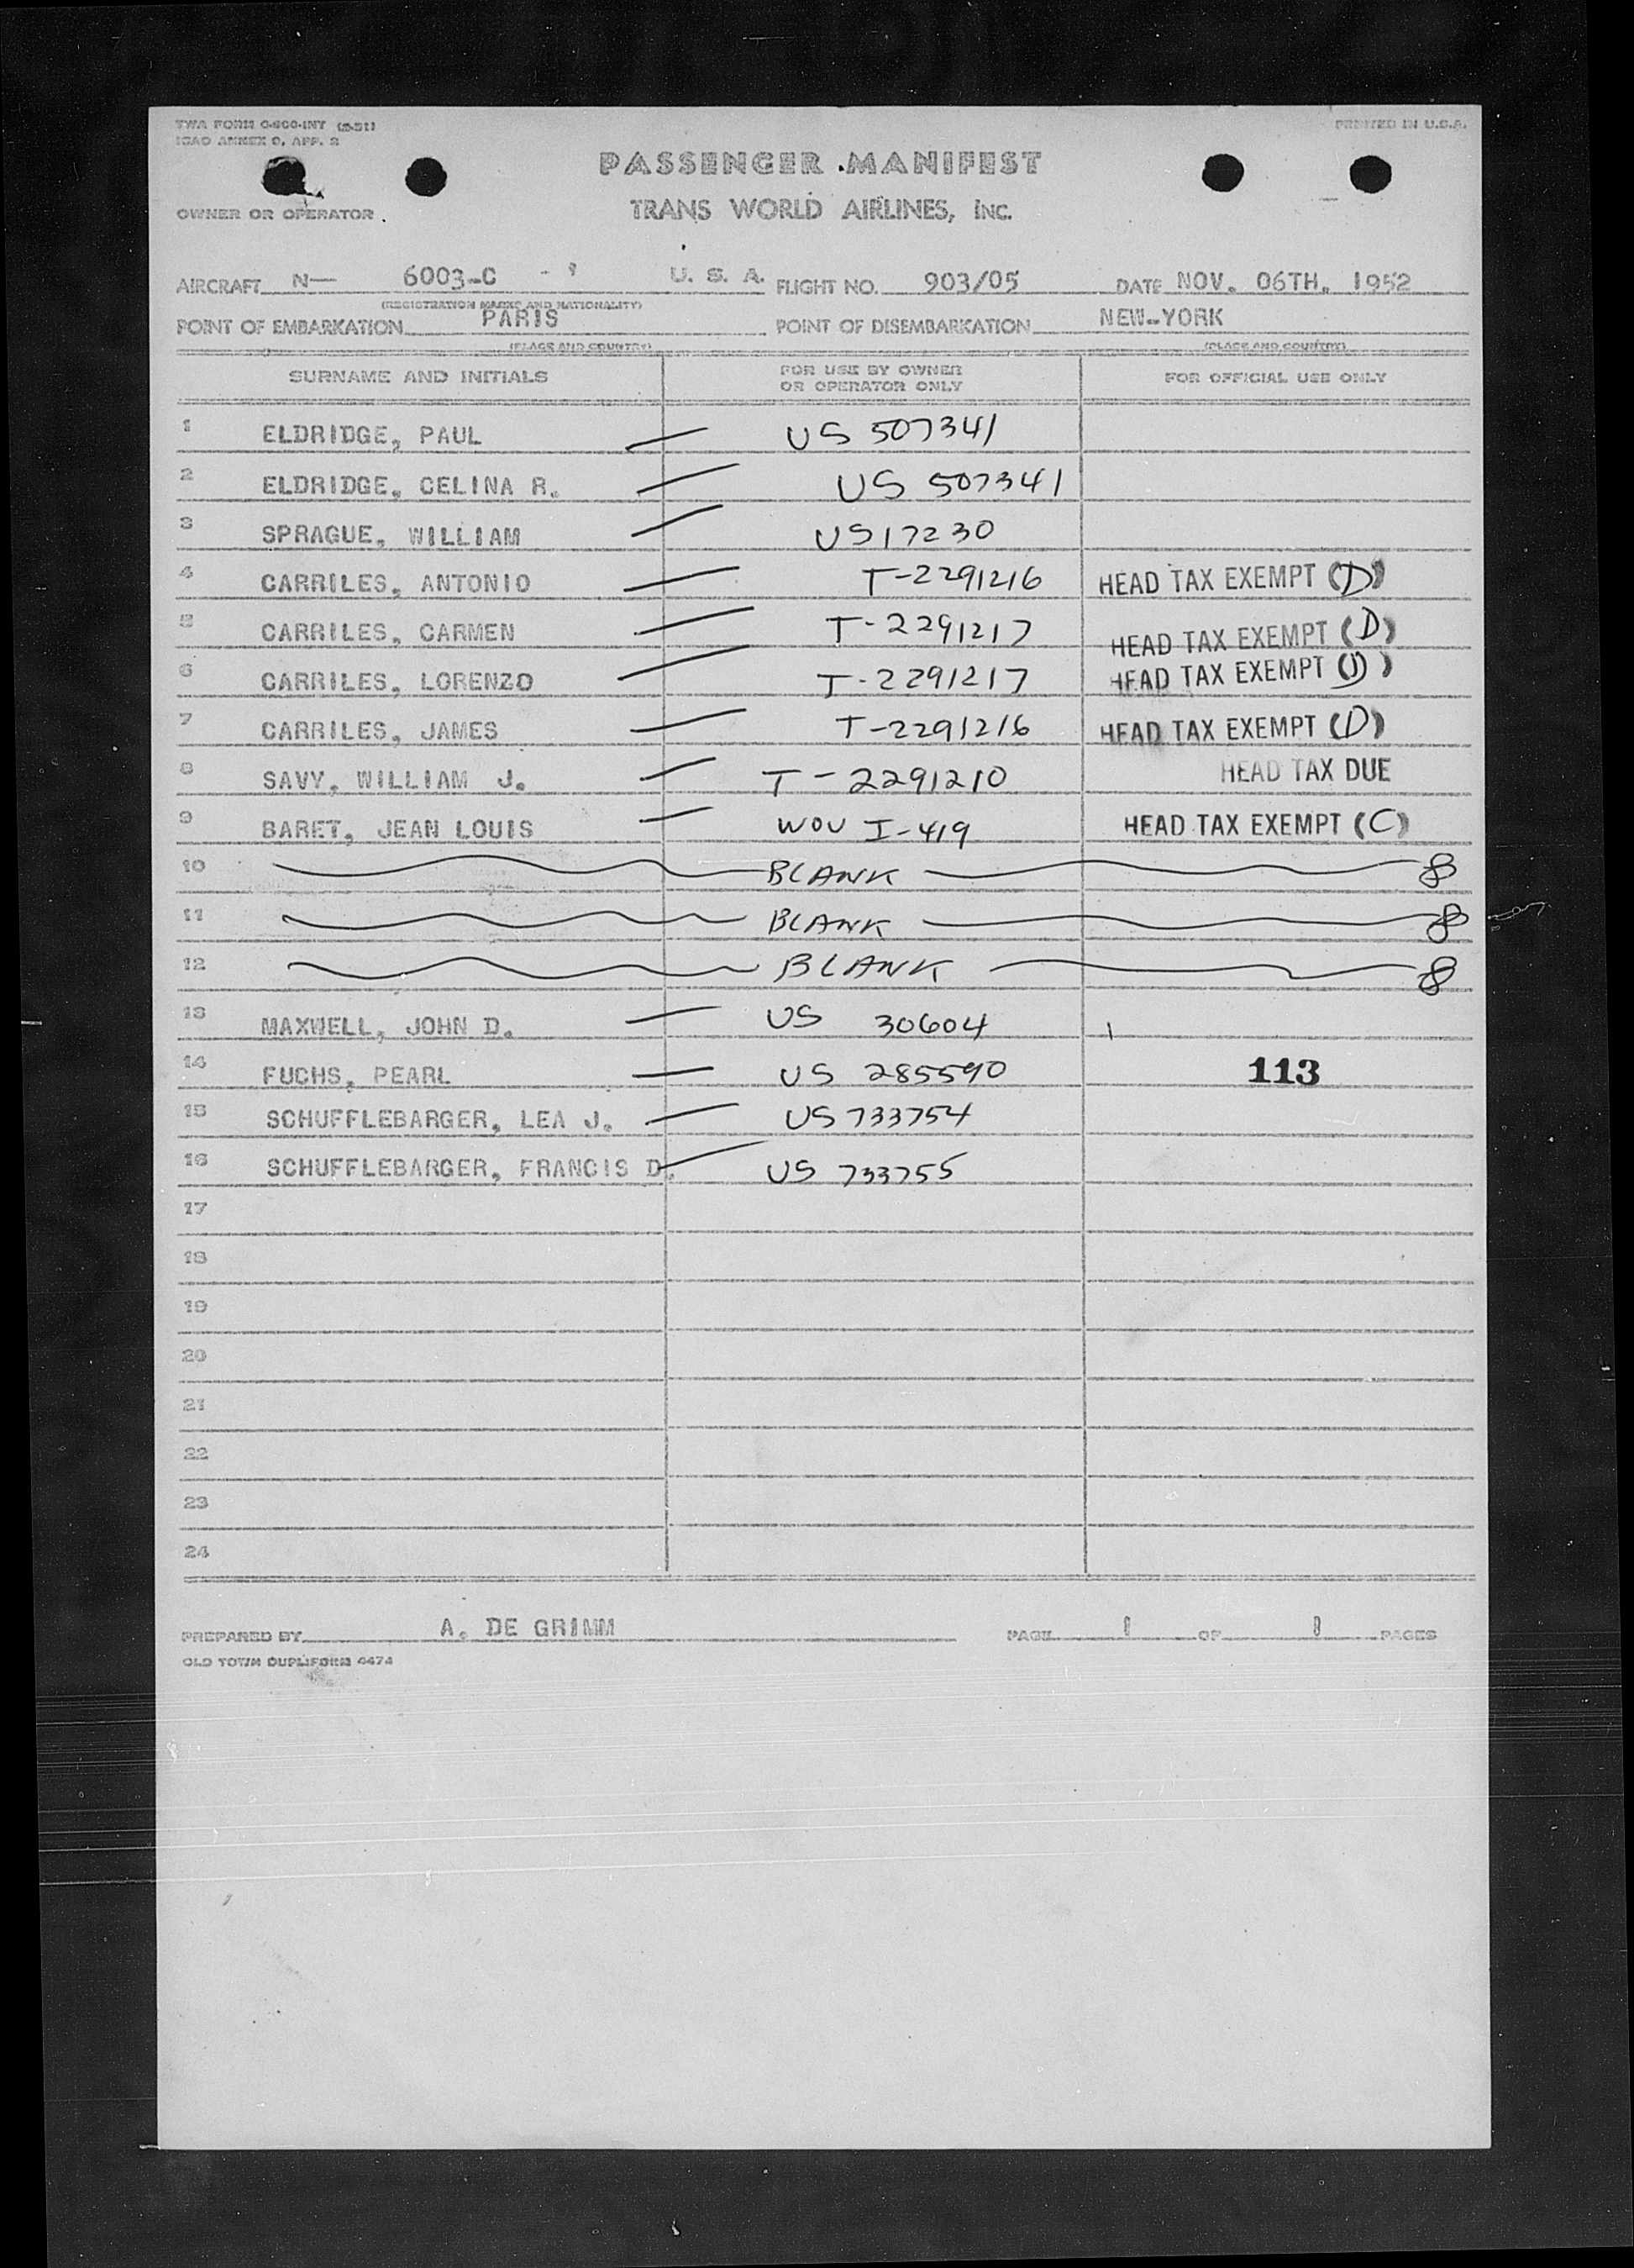 TWA FORM O-800-INT (5-51)
ICAO ANNEX 9, APP. 2
PRINTED IN U.S.A.
PASSENGER MANIFEST
OWNER OR OPERATOR
TRANS WORLD AIRLINES, INC.
AIRCRAFT N— 6003-C U. S. A. FLIGHT NO. 903/05 DATE NOV. 06TH. 1952
(REGISTRATION MARKS AND NATIONALITY)
POINT OF EMBARKATION PARIS POINT OF DISEMBARKATION NEW-YORK
(PLACE AND COUNTRY) (PLACE AND COUNTRY)
SURNAME AND INITIALS FOR USE BY OWNER OR OPERATOR ONLY FOR OFFICIAL USE ONLY
1 ELDRIDGE, PAUL — US 507341
2 ELDRIDGE, CELINA R. — US 507341
3 SPRAGUE, WILLIAM — US 17230
4 CARRILES, ANTONIO — T-2291216 HEAD TAX EXEMPT (D)
5 CARRILES, CARMEN — T-2291217 HEAD TAX EXEMPT (D)
6 CARRILES, LORENZO — T-2291217 HEAD TAX EXEMPT (D)
7 CARRILES, JAMES — T-2291216 HEAD TAX EXEMPT (D)
8 SAVY, WILLIAM J. — T-2291210 HEAD TAX DUE
9 BARET, JEAN LOUIS — WOU I-419 HEAD TAX EXEMPT (C)
10 BLANK
11 BLANK
12 BLANK
13 MAXWELL, JOHN D. — US 30604
14 FUCHS, PEARL — US 285590 113
15 SCHUFFLEBARGER, LEA J. — US 733754
16 SCHUFFLEBARGER, FRANCIS D. — US 733755
17
18
19
20
21
22
23
24
PREPARED BY A. DE GRIMM PAGE 1 OF 1 PAGES
OLD TOWN DUPLIFORM 4474